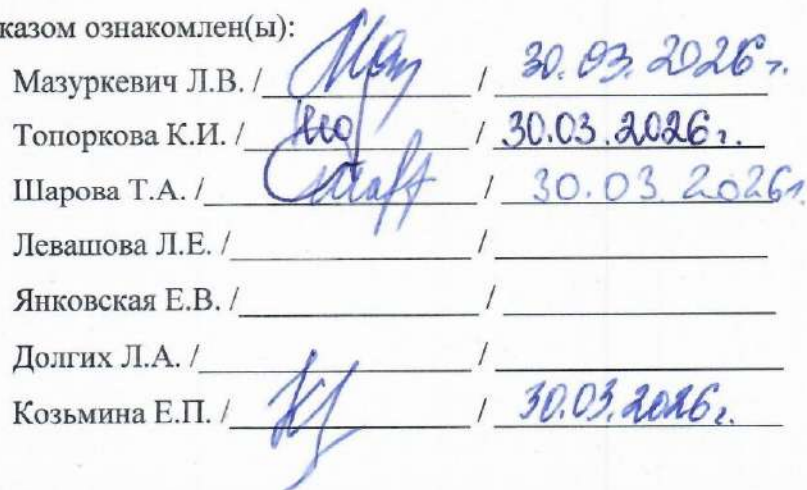 казом ознакомлен(ы):
Мазуркевич Л.В. / / 30.03.2026 г.
Топоркова К.И. / / 30.03.2026 г.
Шарова Т.А. / / 30.03.2026 г.
Левашова Л.Е. / /
Янковская Е.В. / /
Долгих Л.А. / /
Козьмина Е.П. / / 30.03.2026 г.